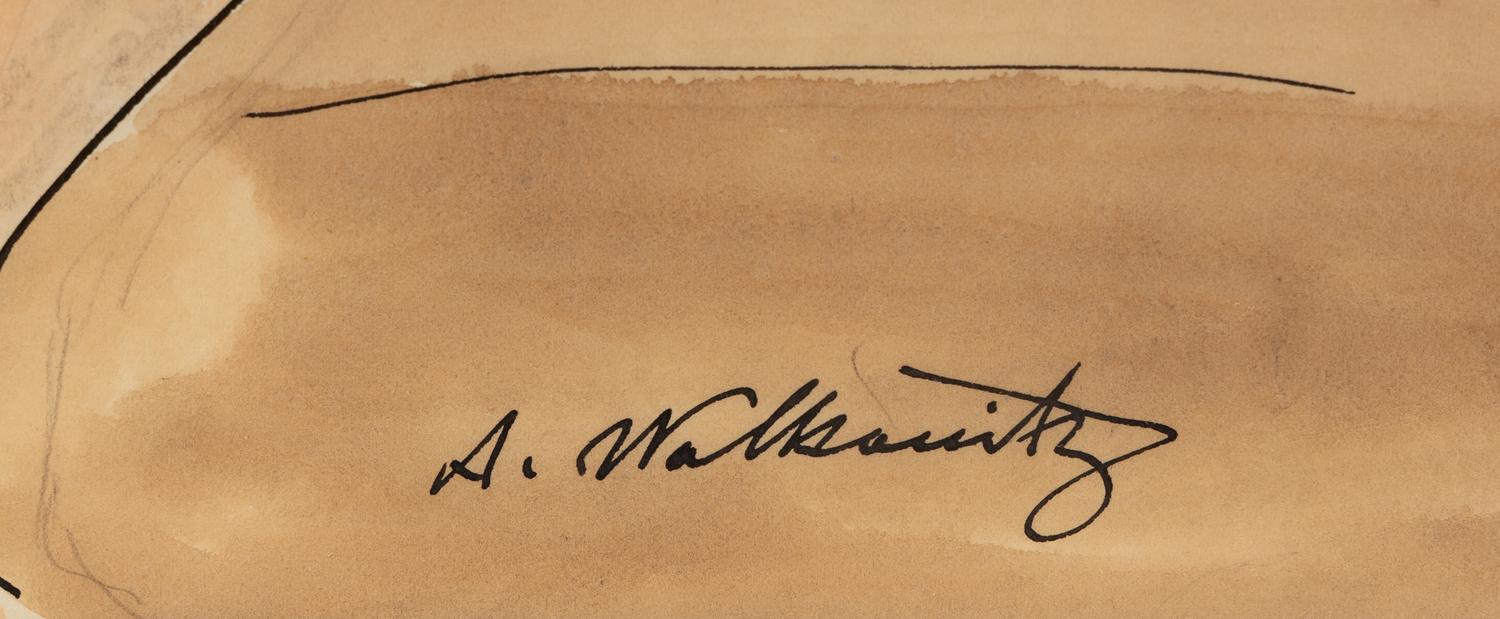 A. Walkowitz